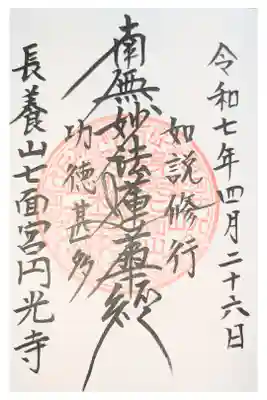 令和七年四月二十六日
如説修行
南無妙法蓮華経
功徳甚多
長養山七面宮円光寺